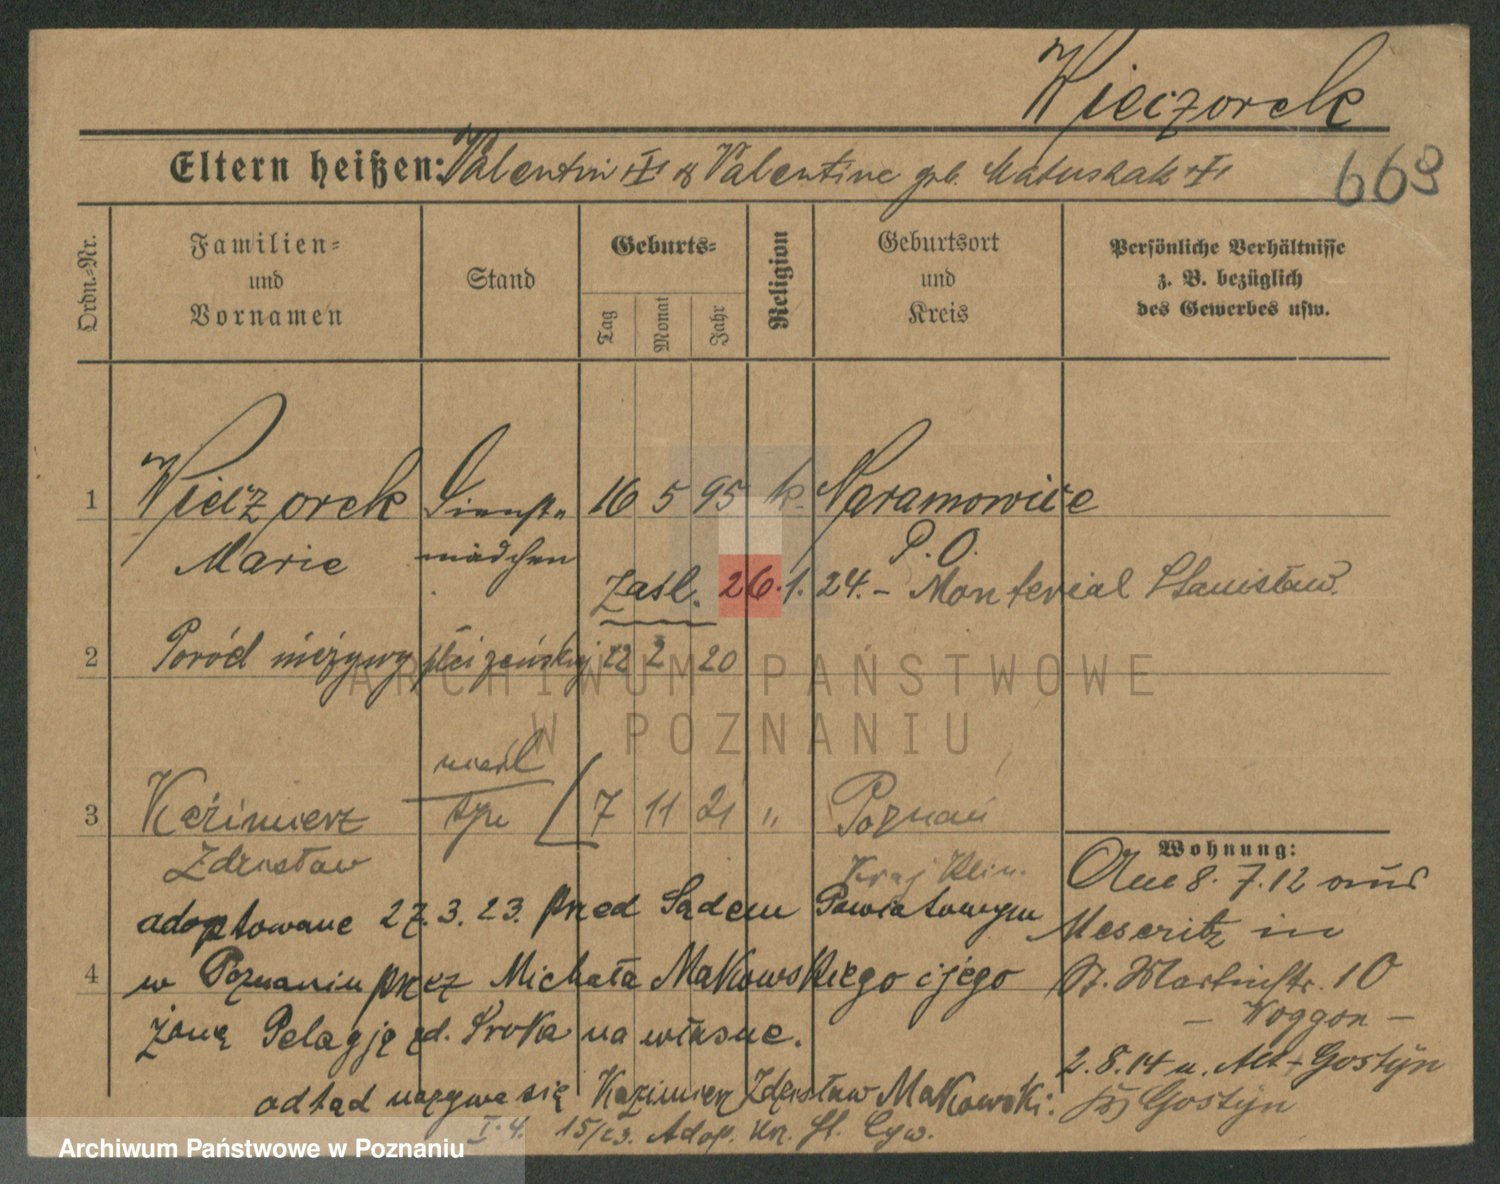 Wieczorek
Eltern heißen: Valentin & Valentine geb. Matuszak
663
Ordn.=Nr.
Familien=
und
Vornamen
Stand
Geburts=
Tag
Monat
Jahr
Religion
Geburtsort
und
Kreis
Persönliche Verhältnisse
z. B. bezüglich
des Gewerbes usw.
1 Wieczorek Dienst= 16 5 95 k. Naramowice
Marie mädchen P. O.
zaśl. 26.1.24. – Monterial Stanisław.
2 Poród nieżywy płci żeńskiej 12 2 20
ARCHIWUM PAŃSTWOWE
W POZNANIU
nieśl
3 Kazimierz syn 7 11 21 " Poznań
Zdzisław Kraj Klin.
Wohnung:
adoptowane 27.3.23. przed Sądem Powiatowym
4 w Poznaniu przez Michała Makowskiego i jego
żonę Pelagję zd. Sroka na własne.
odtąd nazywa się Kazimierz Zdzisław Makowski.
I.4. 15/23. Adop. Urz. St. Cyw.
Am 8. 7.12 aus
Meseritz in
St. Martinstr. 10
– Woggon –
2.8.14 n. Alt-Gostyn
Gostyn
Archiwum Państwowe w Poznaniu